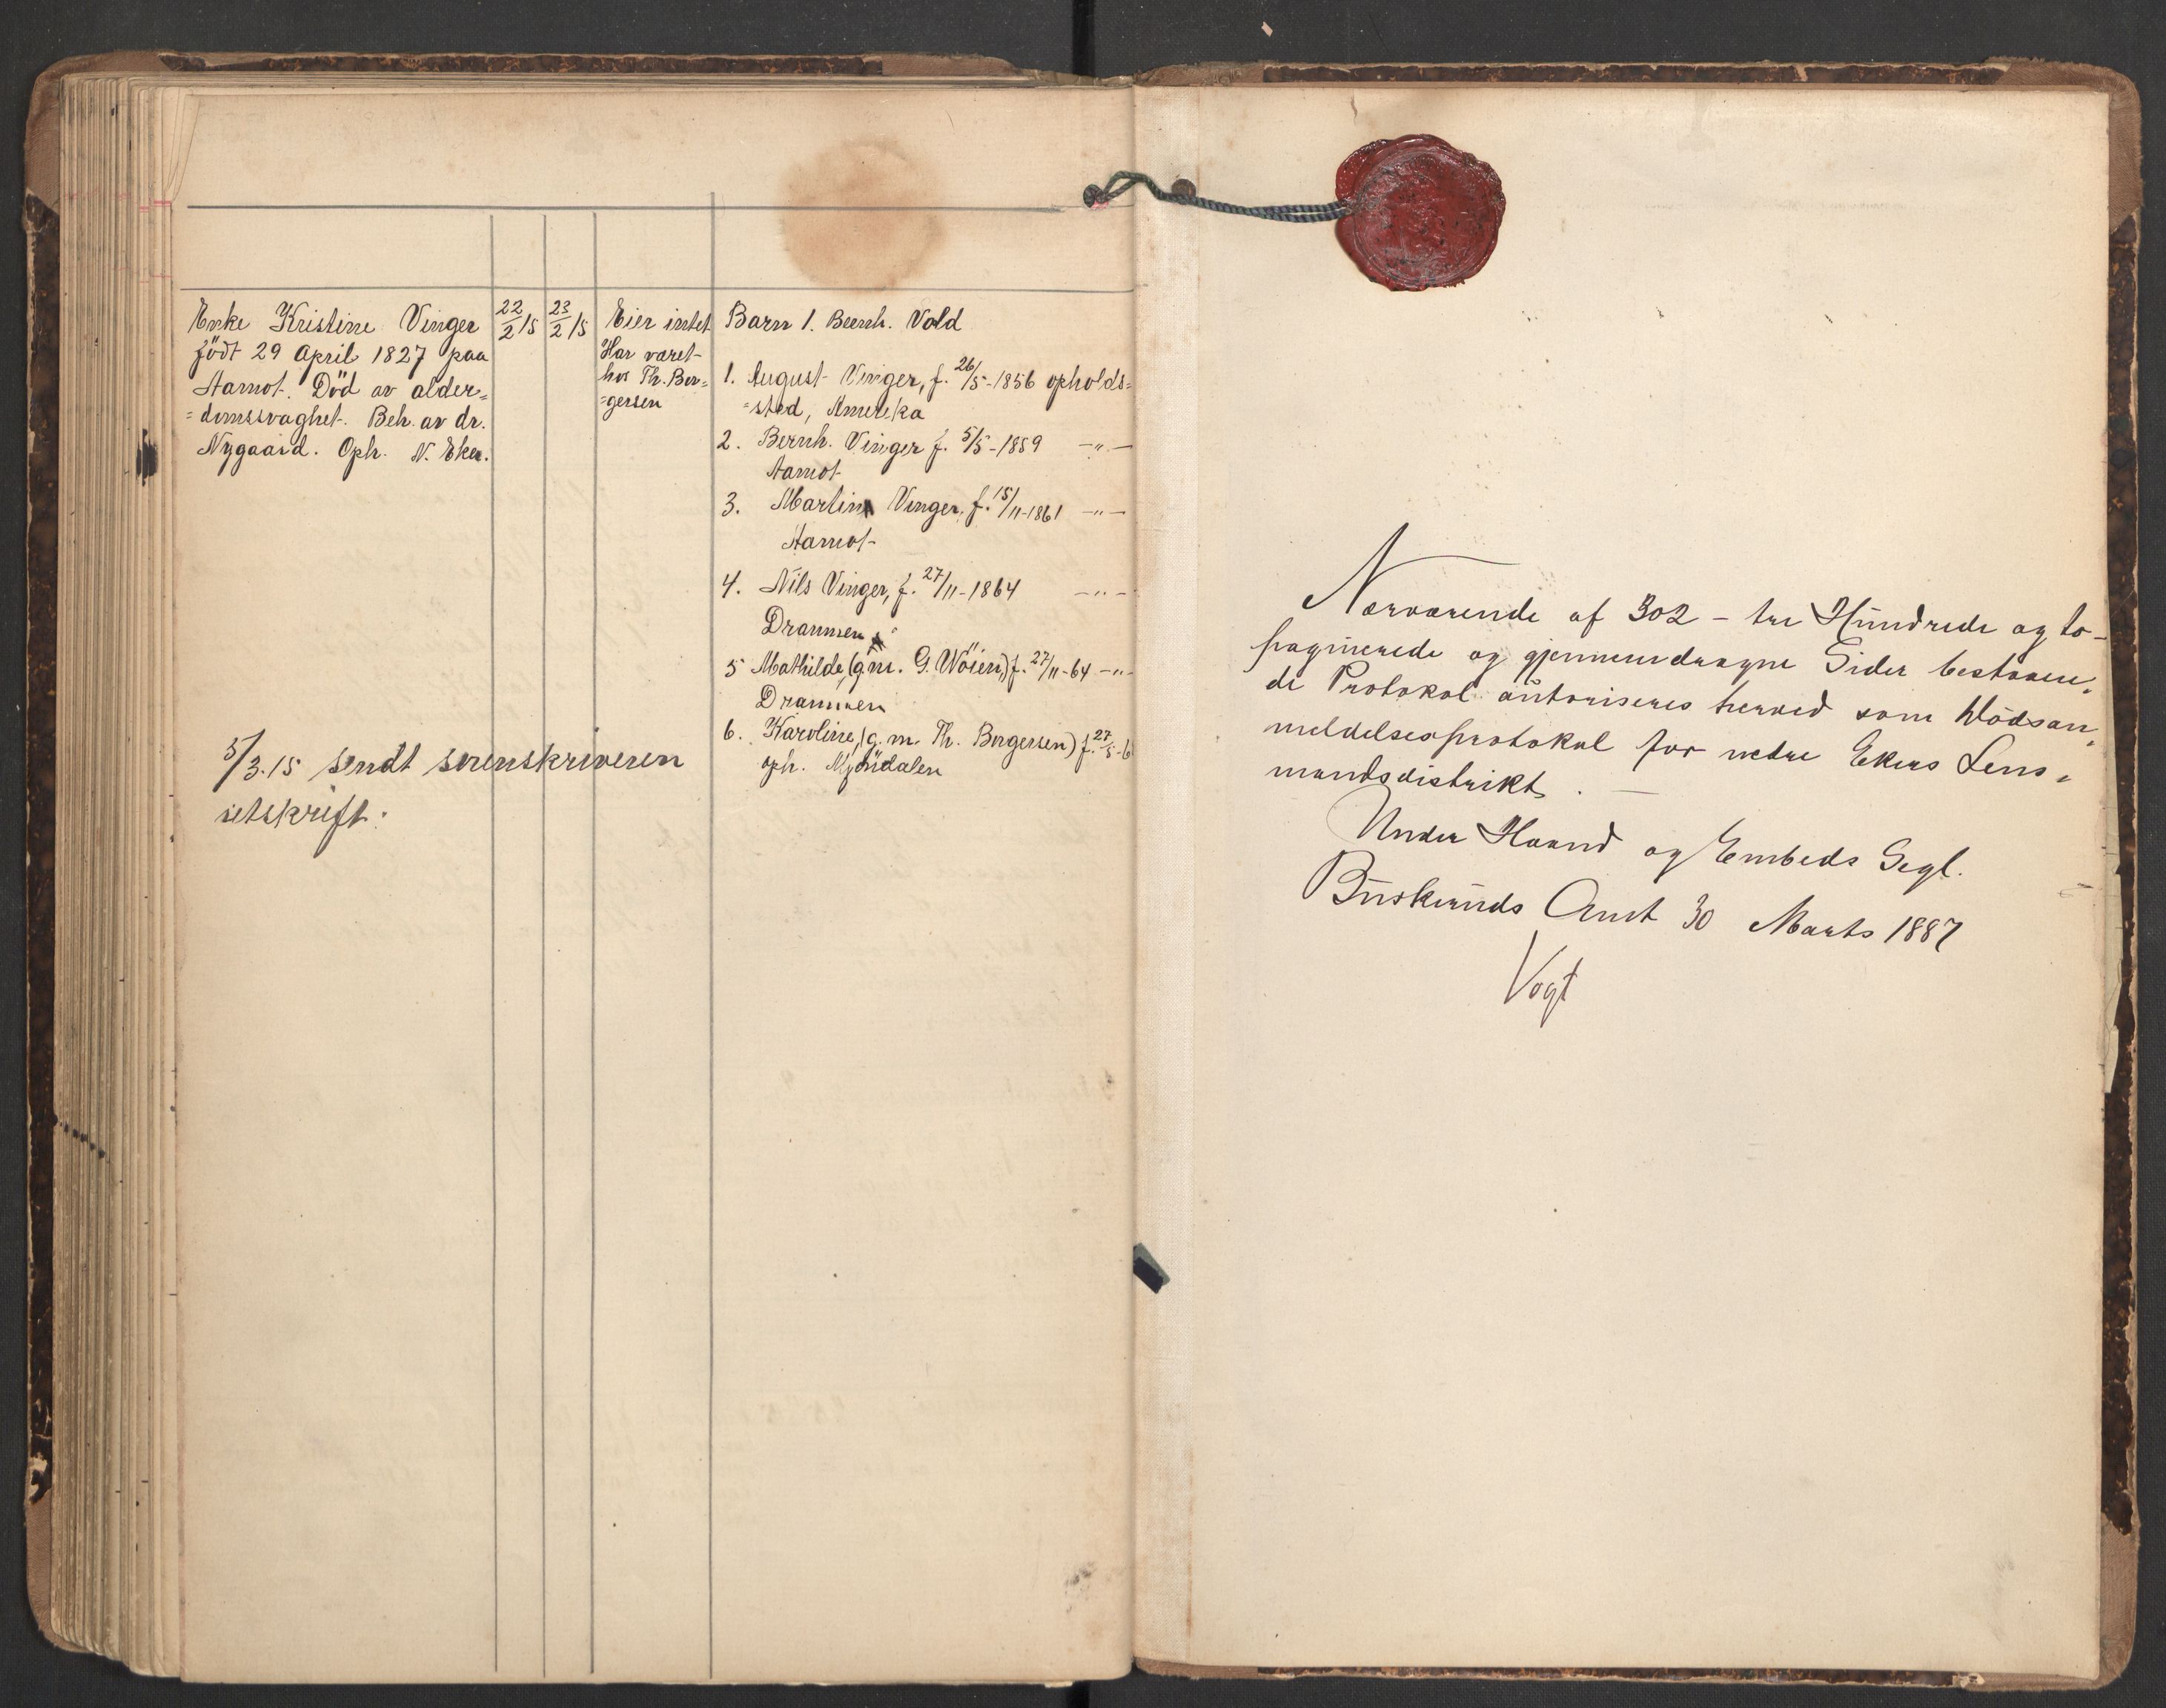 Enke Kristine Vinger
født 29 April 1827 paa
Aamot. Død av alder=
=domssvaghet. Beh. av dr.
Nygaard. Oph. N. Eker.
22/2 15
23/2 15
Eier intet
Har været
hos Th. Bor=
=gersen
Barn 1. Beernh. Vold
1. August Vinger, f. 26/5-1856 opholds=
=sted, Amerika
2. Bernh. Vinger f. 5/5-1859 —"—
Aamot
3. Martin Vinger, f. 15/11-1861 —"—
Aamot
4. Nils Vinger, f. 27/11-1864 —"—
Drammen
5 Mathilde, (g.m. G. Wöien,) f. 27/11-64 —"—
Drammen
6. Karoline, (g. m. Th. Borgersen) f. 27/5-6
oph. Mjöndalen
5/3.15 sendt sorenskriveren
utskrift.
Nærværende af 302 – tre Hundrede og to –
paginerede og gjennemdragne Sider bestaaen„
de Protokol autoriseres herved som Dødsan„
meldelsesprotokol for nedre Ekers Lens„
mandsdistrikt. —
Under Haand og Embeds Segl.
Buskeruds Amt 30 Marts 1887
Vogt